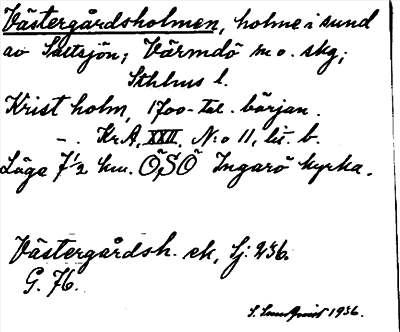 Västergårdsholmen, holme i sund
av Saltsjön; Värmdö m o. skg;
Sthlms l.
Krist holm, 1700-tal. början.
–. Kr A, XXII, N:o 11, lit. b.
Läge 7½ km. ÖSÖ Ingarö kyrka.
Västergårdsh. ek, Sj: 236.
G. 76.
S. Lundqvist 1936.